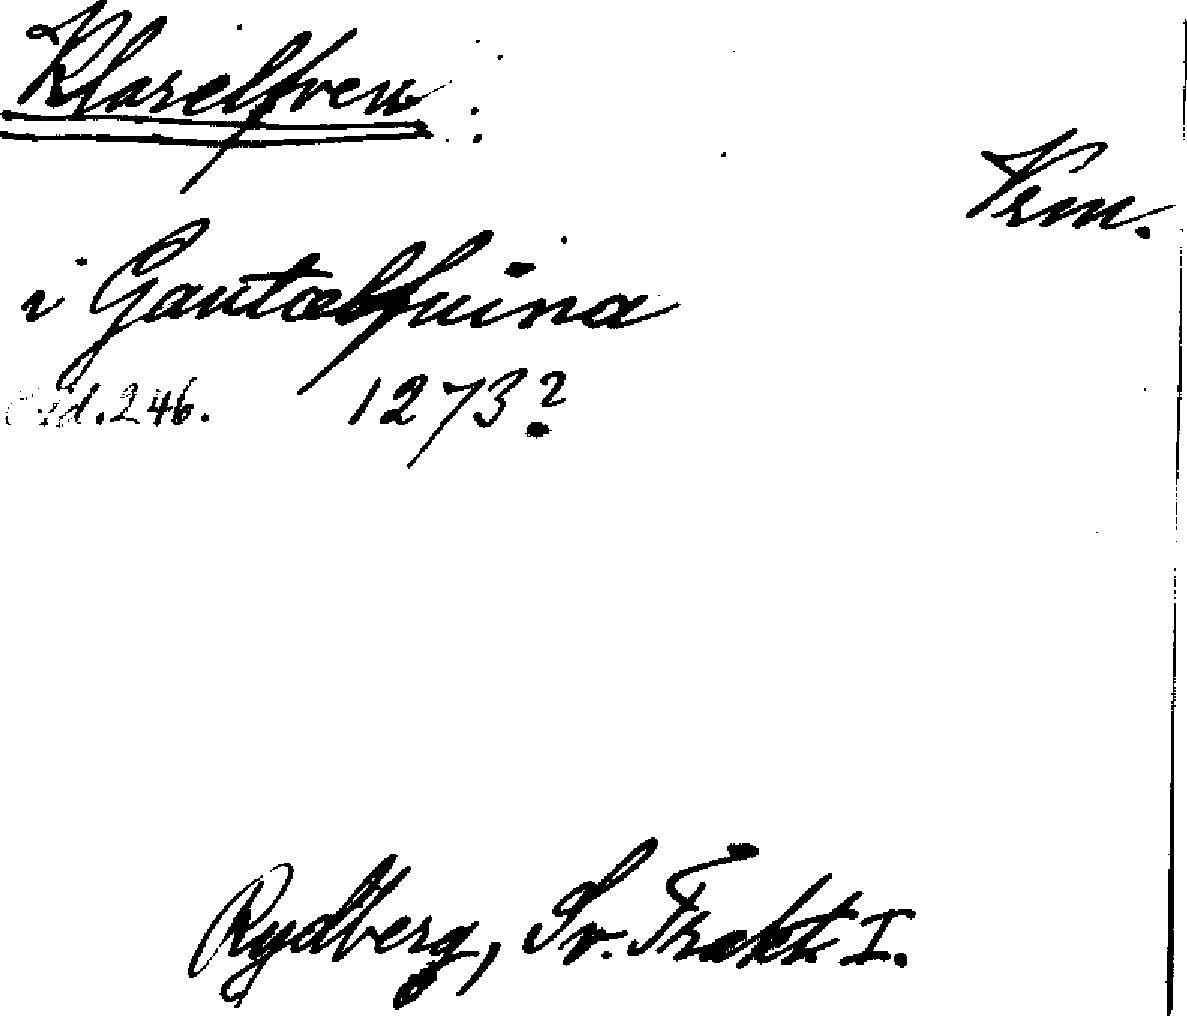 Klarelfven
Vrm.
i Gautælfuina
sid. 246. 1273?
Rydberg, Sv. Trakt. I.